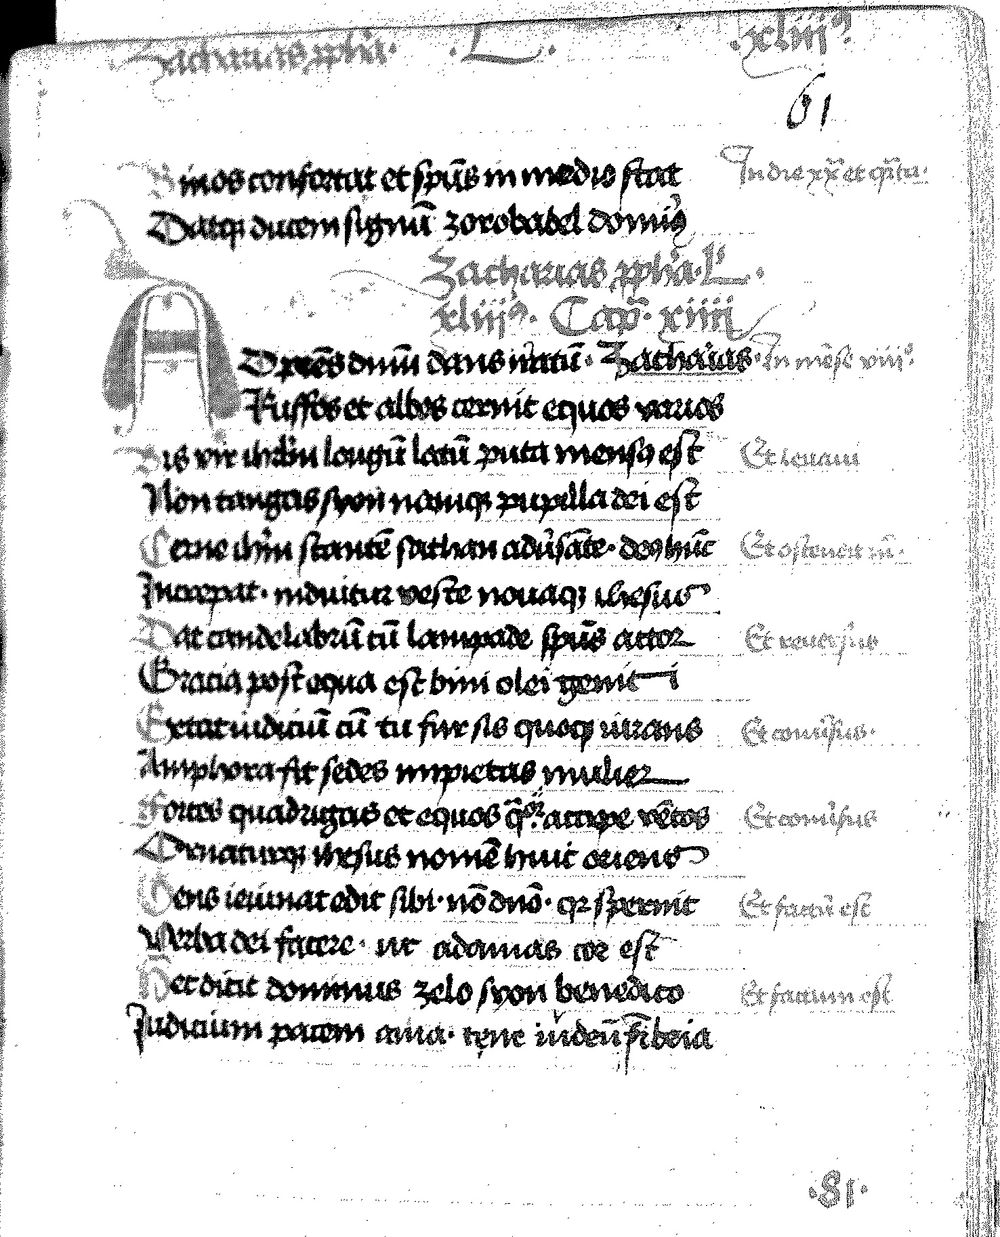 Zacharias ppha· .L. .xliiiꝰ.
61
Binos confortat et spūs in medio stat In die xx et q̄rta·
Datq; ducem signū zorobabel domiꝰ
Zacharias ppha· L·
xliiiꝰ· Cap· xiiii
A Dp̄tes dnm̄ dans iratū· Zacharias· In mēse viiiº
Ruffos et albos cernit equos varios
Bis vir ihrl̄m longū latū puta mensꝰ est Et levavi
Non tangas syon namq; pupilla dei est
Cerne ihm̄ stantē sathan adūsāte· deꝰ hūc Et ostendit m̄·
Increpat· induitur veste novaq; ihesus
Dat candelabrū cū lampade spūs actor Et reversus
Gracia post equa est bini olei genit i
Extat iudiciū cū tu fur sis quoq; iurans Et conūsus·
Amphora fit sedes impietas mulier
Fortes quadrigas et equos q̄r accipe vētos Et conūsus
Ornaturq; ihesus nomē huic oriens
Gens ieiunat edit sibi· nō dnō· qr spernit Et factū est
Verba dei facere· ut adamas cor est
Hec dicit dominus zelo syon benedico Et factum est
Iudicium pacem ama· tene iudeū fibria
·81·